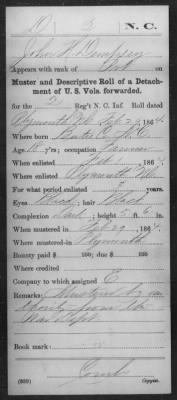 D 2 N.C.
John
Appears with rank of
Muster and Descriptive Roll of a Detach-
ment of U. S. Vols. forwarded.
for the 2 Reg't N. C. Inf. Roll dated
Plymouth N.C. Feb 29, 1864.
Where born Bertie Co. N.C.
Age 18 y'rs; occupation Farmer
When enlisted Feb 1, 1864.
Where enlisted Plymouth N.C.
For what period enlisted 3 years.
Eyes Black; hair Black
Complexion Dark; height 5 ft. 6 in.
When mustered in Feb 29, 1864.
Where mustered in Plymouth
Bounty paid $ 100; due $ 100
Where credited
Company to which assigned E
Remarks: Mustered by
authority from the
War Dept.
Book mark:
(339) Copyist.